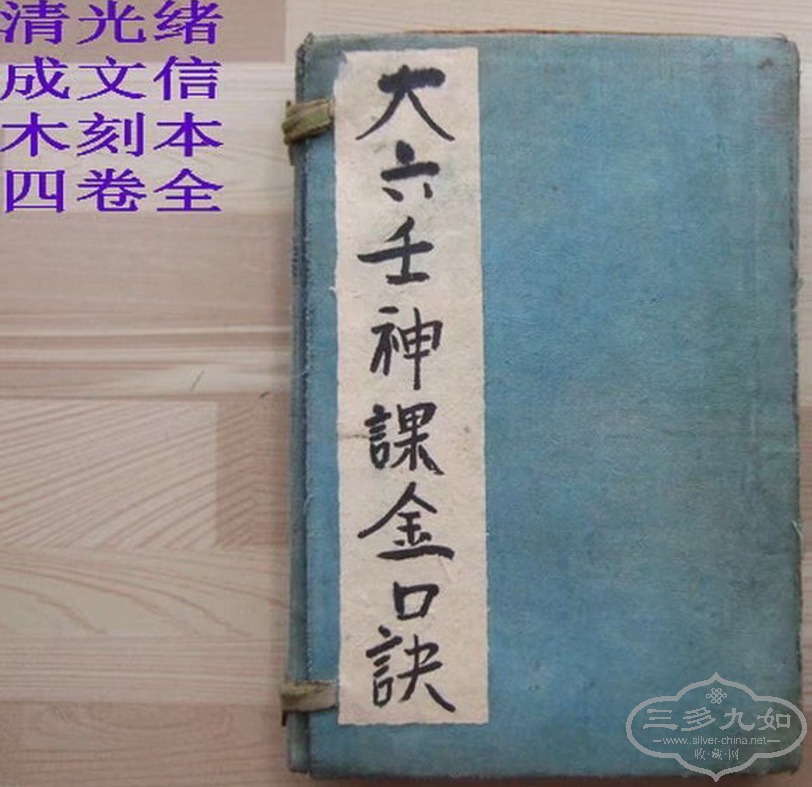 清光绪
成文信
木刻本
四卷全
大六壬神課金口訣
三多九如
www.silver-china.net
收·藏·网